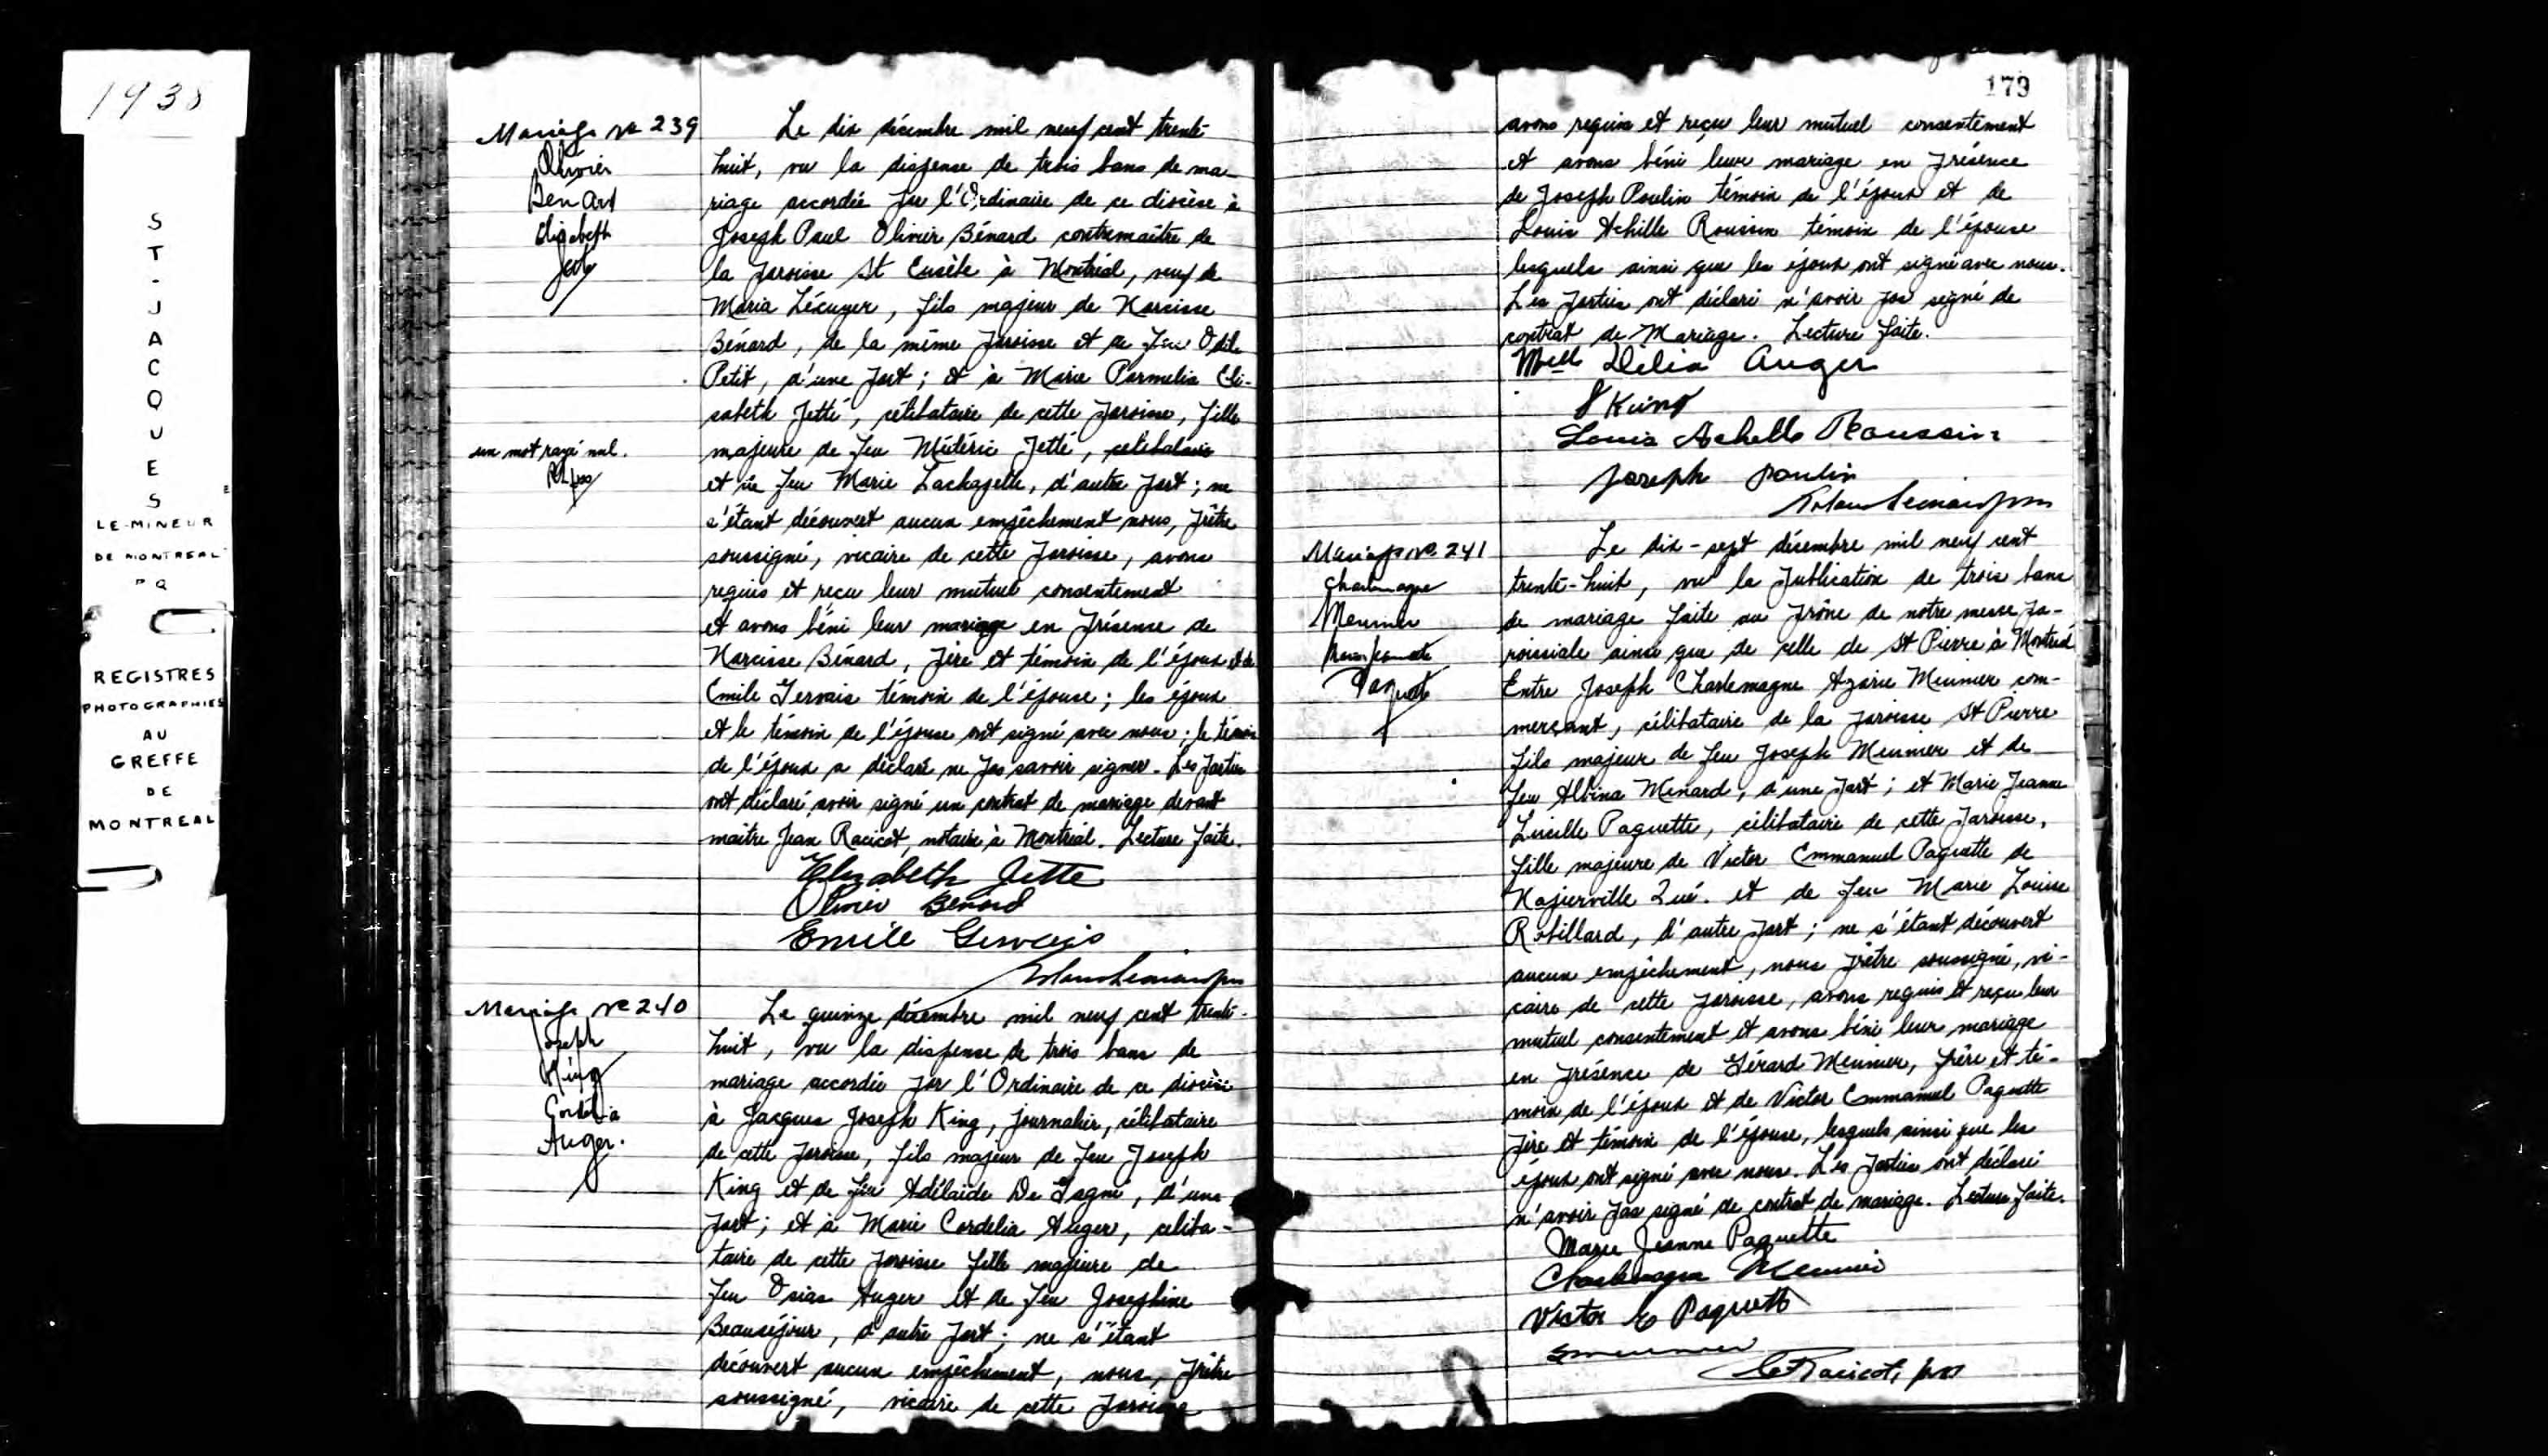 1938
S
T
-
J
A
C
Q
U
E
S
LE-MINEUR
DE MONTREAL
P Q
REGISTRES
PHOTOGRAPHIES
AU
GREFFE
DE
MONTREAL
Mariage No 239
Olivier
Benard
Elisabeth
Jetté
un mot rayé nul.
Le dix décembre mil neuf cent trente-
huit, vu la dispense de trois bans de ma-
riage accordée par l'Ordinaire de ce diocèse à
Joseph Paul Olivier Bénard contremaître de
la paroisse St Eusèbe à Montréal, veuf de
Maria Lécuyer, fils majeur de Narcisse
Bénard, de la même paroisse et de feu Odile
Petit, d'une part; et à Marie Parmelia Eli-
sabeth Jetté, célibataire de cette paroisse, fille
majeure de feu Médéric Jetté, célibataire
et de feu Marie Lachapelle, d'autre part; ne
s'étant découvert aucun empêchement nous, prêtre
soussigné, vicaire de cette paroisse, avons
requis et reçu leur mutuel consentement
et avons béni leur mariage en présence de
Narcisse Bénard, père et témoin de l'époux et de
Emile Gervais témoin de l'épouse; les époux
et le témoin de l'épouse ont signé avec nous; le témoin
de l'époux a déclaré ne pas savoir signer. Les parties
ont déclaré avoir signé un contrat de mariage devant
maître Jean Racicot, notaire à Montréal. Lecture faite.
Elizabeth Jette
Olivier Benard
Emile Gervais
Mariage No 240
Joseph
King
Cordélia
Auger.
Le quinze décembre mil neuf cent trente-
huit, vu la dispense de trois bans de
mariage accordée par l'Ordinaire de ce diocèse
à Jacques Joseph King, journalier, célibataire
de cette paroisse, fils majeur de feu Joseph
King et de feu Adélaide De Gagné, d'une
part; et à Marie Cordelia Auger, céliba-
taire de cette paroisse fille majeure de
feu Osias Auger et de feu Josephine
Beauséjour, d'autre part; ne s'étant
découvert aucun empêchement, nous, prêtre
soussigné, vicaire de cette paroisse
179
avons requis et reçu leur mutuel consentement
et avons béni leur mariage en présence
de Joseph Poulin témoin de l'époux et de
Louis Achille Roussin témoin de l'épouse
lesquels ainsi que les époux ont signé avec nous.
Les parties ont déclaré n'avoir pas signé de
contrat de Mariage. Lecture faite.
Melle Délia Auger
J King
Louis Achille Roussin
Joseph Poulin
Mariage No. 241
Charlemagne
Meunier
Marie Jeanne
Paquette
Le dix-sept décembre mil neuf cent
trente-huit, vu la publication de trois bans
de mariage faite au prône de notre messe pa-
roissiale ainsi que de celle de St Pierre à Montréal
Entre Joseph Charlemagne Azarie Meunier com-
merçant, célibataire de la paroisse St Pierre
fils majeur de feu Joseph Meunier et de
feu Albina Ménard, d'une part; et Marie Jeanne
Lucille Paquette, célibataire de cette paroisse,
fille majeure de Victor Emmanuel Paquette de
Napierville Qué. et de feu Marie Louise
Robillard, d'autre part; ne s'étant découvert
aucun empêchement, nous prêtre soussigné, vi-
caire de cette paroisse, avons requis et reçu leur
mutuel consentement et avons béni leur mariage
en présence de Gérard Meunier, frère et té-
moin de l'époux et de Victor Emmanuel Paquette
père et témoin de l'épouse, lesquels ainsi que les
époux ont signé avec nous. Les parties ont déclaré
n'avoir pas signé de contrat de mariage. Lecture faite.
Marie Jeanne Paquette
Charlemagne Meunier
Victor E Paquette
G Meunier
Racicot, ptre